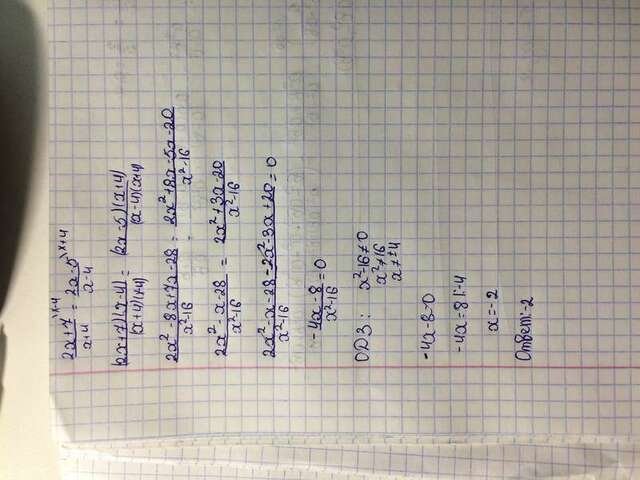 2x+7/x+4 \x-4 = 2x-5/x-4 \x+4
(2x+7)(x-4)/(x+4)(x-4) = (2x-5)(x+4)/(x-4)(x+4)
2x²-8x+7x-28/x²-16 = 2x²+8x-5x-20/x²-16
2x²-x-28/x²-16 = 2x²+3x-20/x²-16
2x²-x-28-2x²-3x+20/x²-16 = 0
-4x-8/x²-16 = 0
ОДЗ: x²-16≠0
x²≠16
x≠±4
-4x-8=0
-4x=8 |:-4
x=-2
Ответ:-2